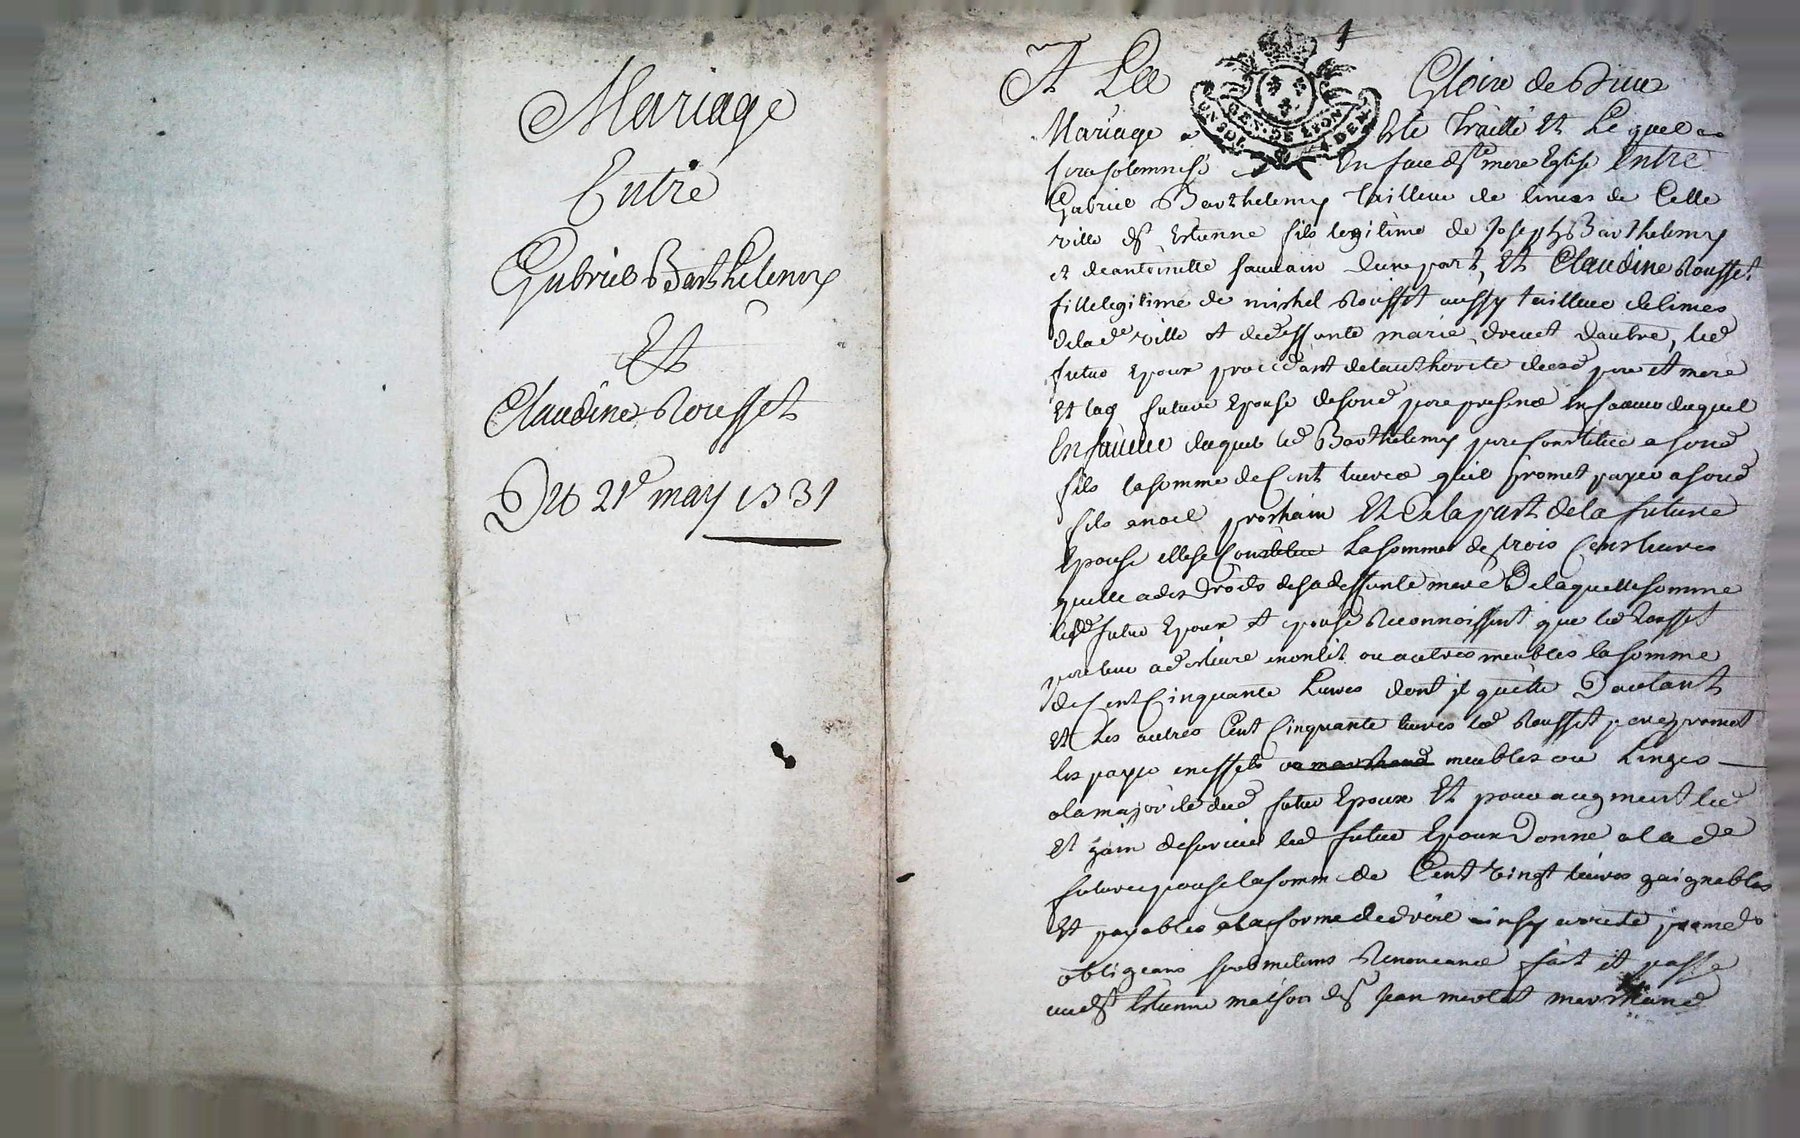 Mariage
Entre
Gabriel Barthelemy
Et
Claudine Rousset
Du 21e may 1731
1
A La Gloire de Dieu
GEN. DE LYON
Mariage a este traitté et Lequel
sera solemnisé En face de ste mere Eglise Entre
Gabriel Barthelemy tailleur de limes de Cette
ville de st Estienne fils legitime de Joseph Barthelemy
et de antoinette d'une part, Et Claudine Rousset
fille legitime de michel Rousset aussy tailleur de limes
de lad ville et de deffunte marie drevet dautre, led
futur Epoux procedant de lauthorité de sesd pere et mere
Et lad future Epouse de sond pere presens En faveur duquel
En faveur duquel led Barthelemy pere Constitue a sond
fils la somme de Cent livres quil promet payer a sond
fils a noel prochain Et De la part de la future
Epouse elle se Constitue La somme de trois Cens livres
quelle a des Droits de sa deffunte mere De laquelle somme
lesd futur Epoux et epouse Reconnoissent que led Rousset
pere en un lit ou autres meubles la somme
de Cent Cinquante Livres dont jl quitte Dautant
Et Les autres Cent Cinquante livres led Rousset pere promet
les payer en effets ou marchand meubles ou Linges
a la majorité dud futur Epoux Et pour augment
Et gain de survie led futur Epoux Donne a lad
future epouse la somme de Cent vingt livres gaignables
Et payables a la forme de droit ainsy arreté
obligeans soubmetans Renonceans fait et passé
aud st Estienne maison de sr Jean merlat marchand